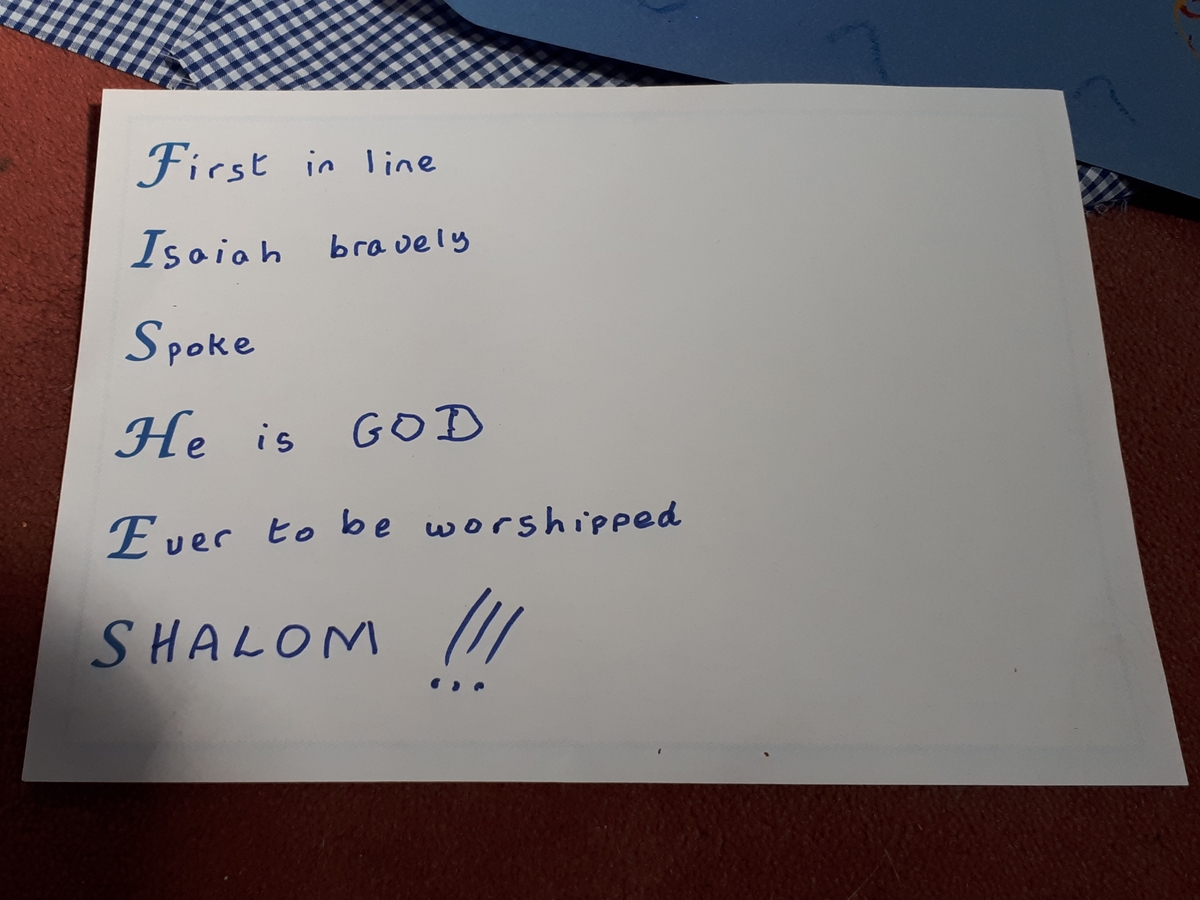 First in line
Isaiah bravely
Spoke
He is GOD
Ever to be worshipped
SHALOM !!!